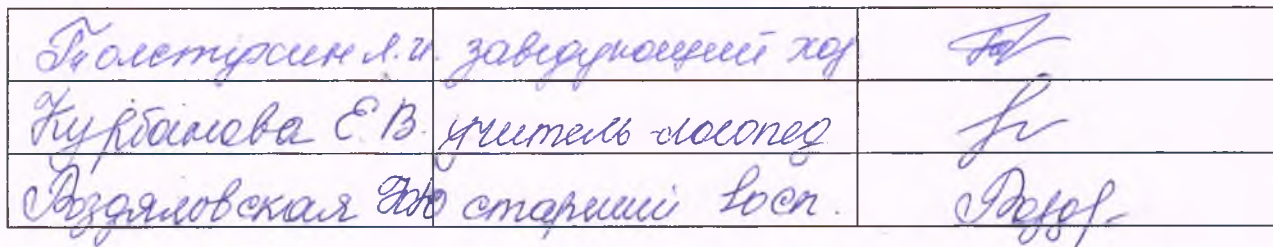 Толстухин А.И. заведующий хоз
Курбанова Е.В. учитель-логопед
Роздяловская старший восп.